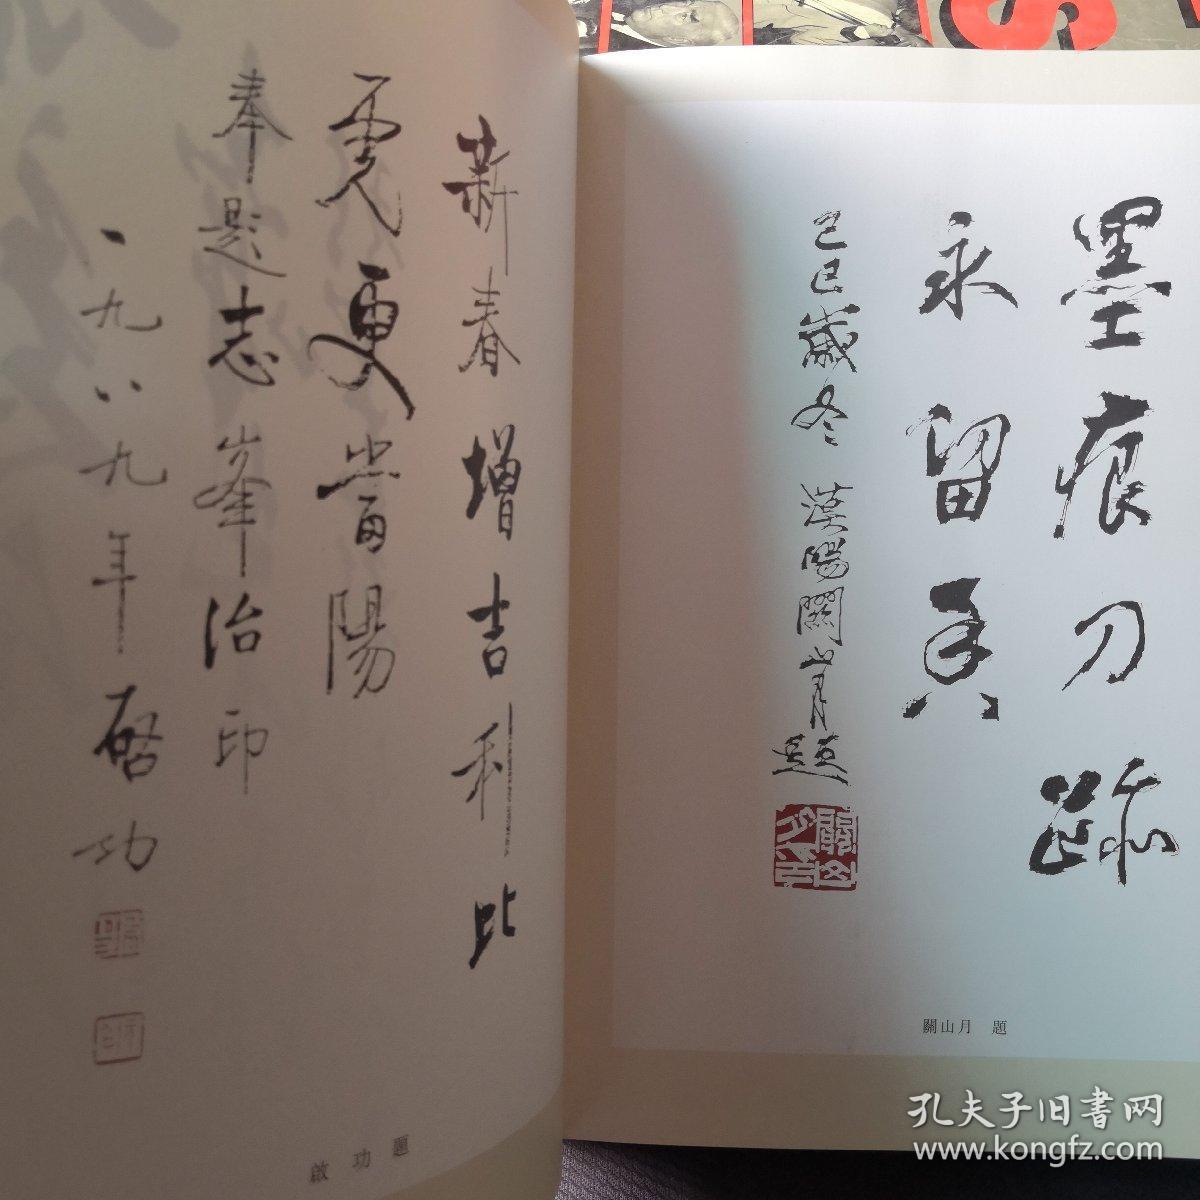 春增吉利比
更當陽
奉題志峯治印
一九八九年啓功
啟功題
墨痕刀跡
永留真
己巳歲冬 漠陽關山月題
關山月 題
孔夫子旧书网
www.kongfz.com